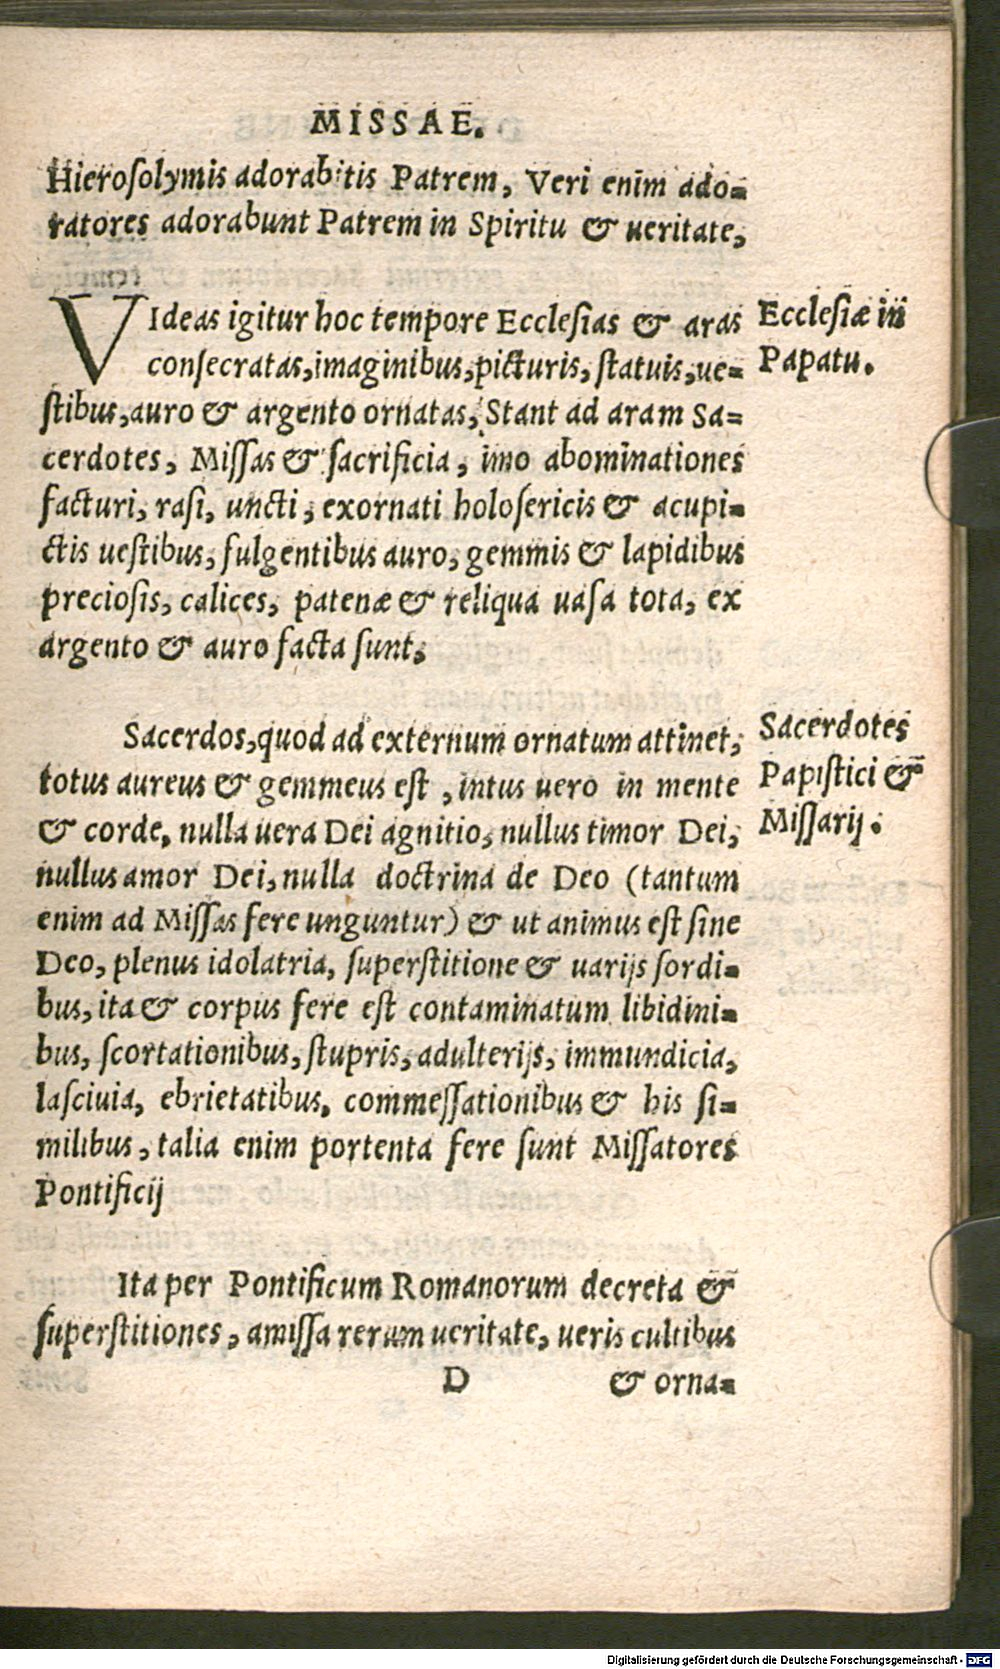 MISSAE.
Hierosolymis adorabitis Patrem, Veri enim ado=
ratores adorabunt Patrem in Spiritu & ueritate,
VIdeas igitur hoc tempore Ecclesias & aras
consecratas, imaginibus, picturis, statuis, ue=
stibus, auro & argento ornatas, Stant ad aram Sa=
cerdotes, Missas & sacrificia, imo abominationes
facturi, rasi, uncti, exornati holosericis & acupi=
ctis uestibus, fulgentibus auro, gemmis & lapidibus
preciosis, calices, patenæ & reliqua uasa tota, ex
argento & auro facta sunt,
Ecclesiæ in
Papatu.
Sacerdos, quod ad externum ornatum attinet,
totus aureus & gemmeus est, intus uero in mente
& corde, nulla uera Dei agnitio, nullus timor Dei,
nullus amor Dei, nulla doctrina de Deo (tantum
enim ad Missas fere unguntur) & ut animus est sine
Deo, plenus idolatria, superstitione & uarijs sordi=
bus, ita & corpus fere est contaminatum libidini=
bus, scortationibus, stupris, adulterijs, immundicia,
lasciuia, ebrietatibus, commessationibus & his si=
milibus, talia enim portenta fere sunt Missatores
Pontificij
Sacerdotes
Papistici &
Missarij.
Ita per Pontificum Romanorum decreta &
superstitiones, amissa rerum ueritate, ueris cultibus
D & orna=
Digitalisierung gefördert durch die Deutsche Forschungsgemeinschaft - DFG